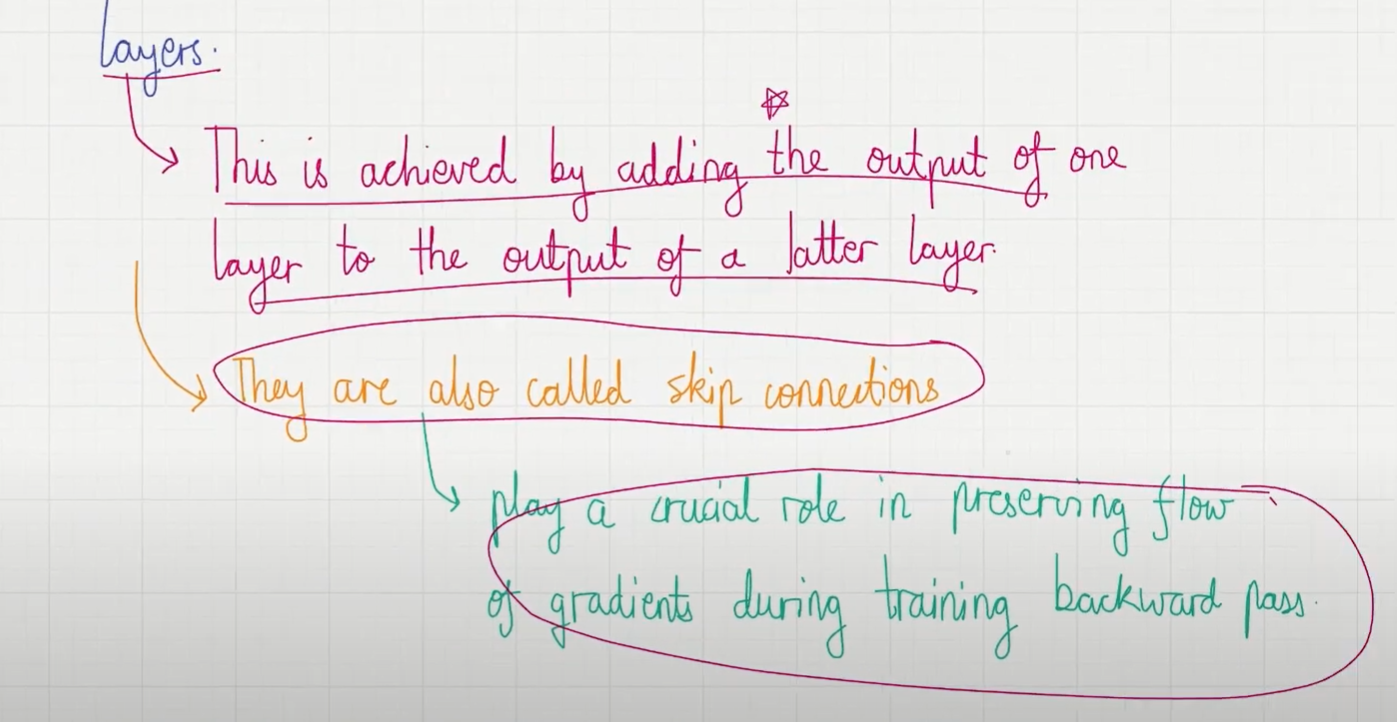 layers.
This is achieved by adding the output of one
layer to the output of a latter layer.
They are also called skip connections
play a crucial role in preserving flow
of gradients during training backward pass.